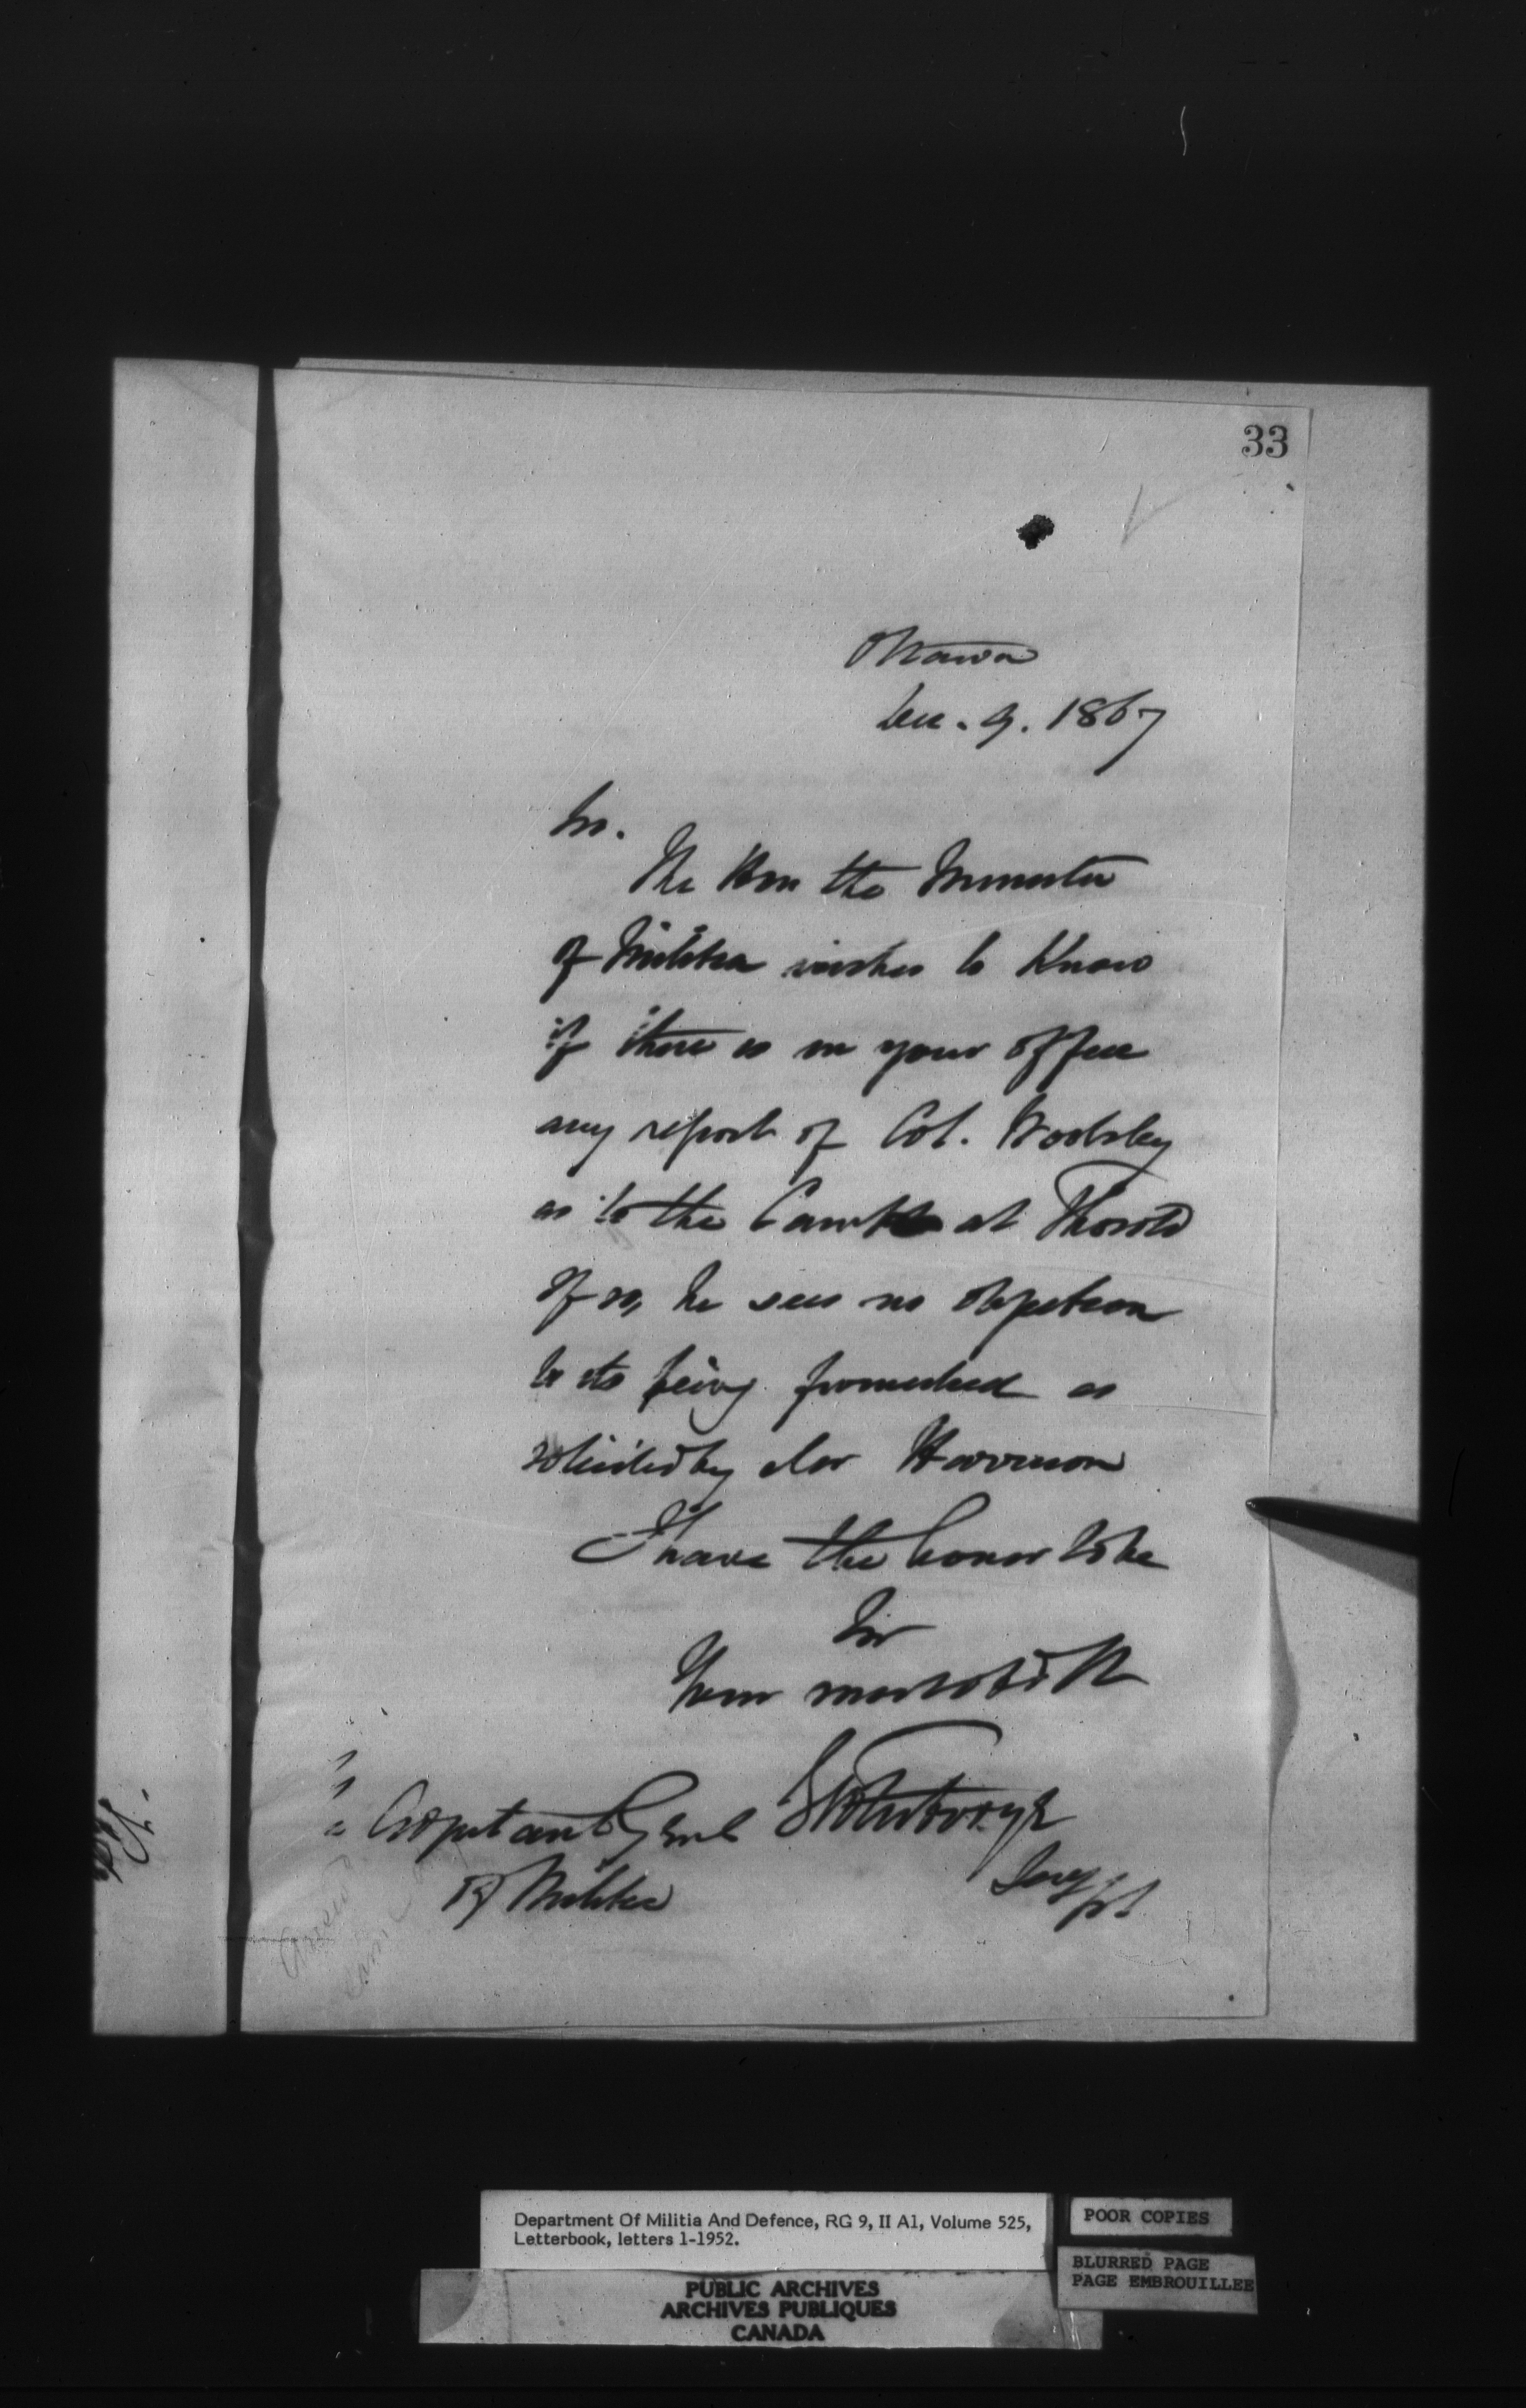 33
Ottawa
Dec. 9. 1867
Sir.
The Hon the Minister
of Militia wishes to Know
if there is in your office
any report of Col. Wolseley
as to the Camp at Thorold
If so, he sees no objection
to its being furnished as
solicited by Mr Harrison
I have the honor to be
Sir
Your most obdt
Adjutant Genl
of Militia
Department Of Militia And Defence, RG 9, II A1, Volume 525,
Letterbook, letters 1-1952.
POOR COPIES
BLURRED PAGE
PAGE EMBROUILLEE
PUBLIC ARCHIVES
ARCHIVES PUBLIQUES
CANADA